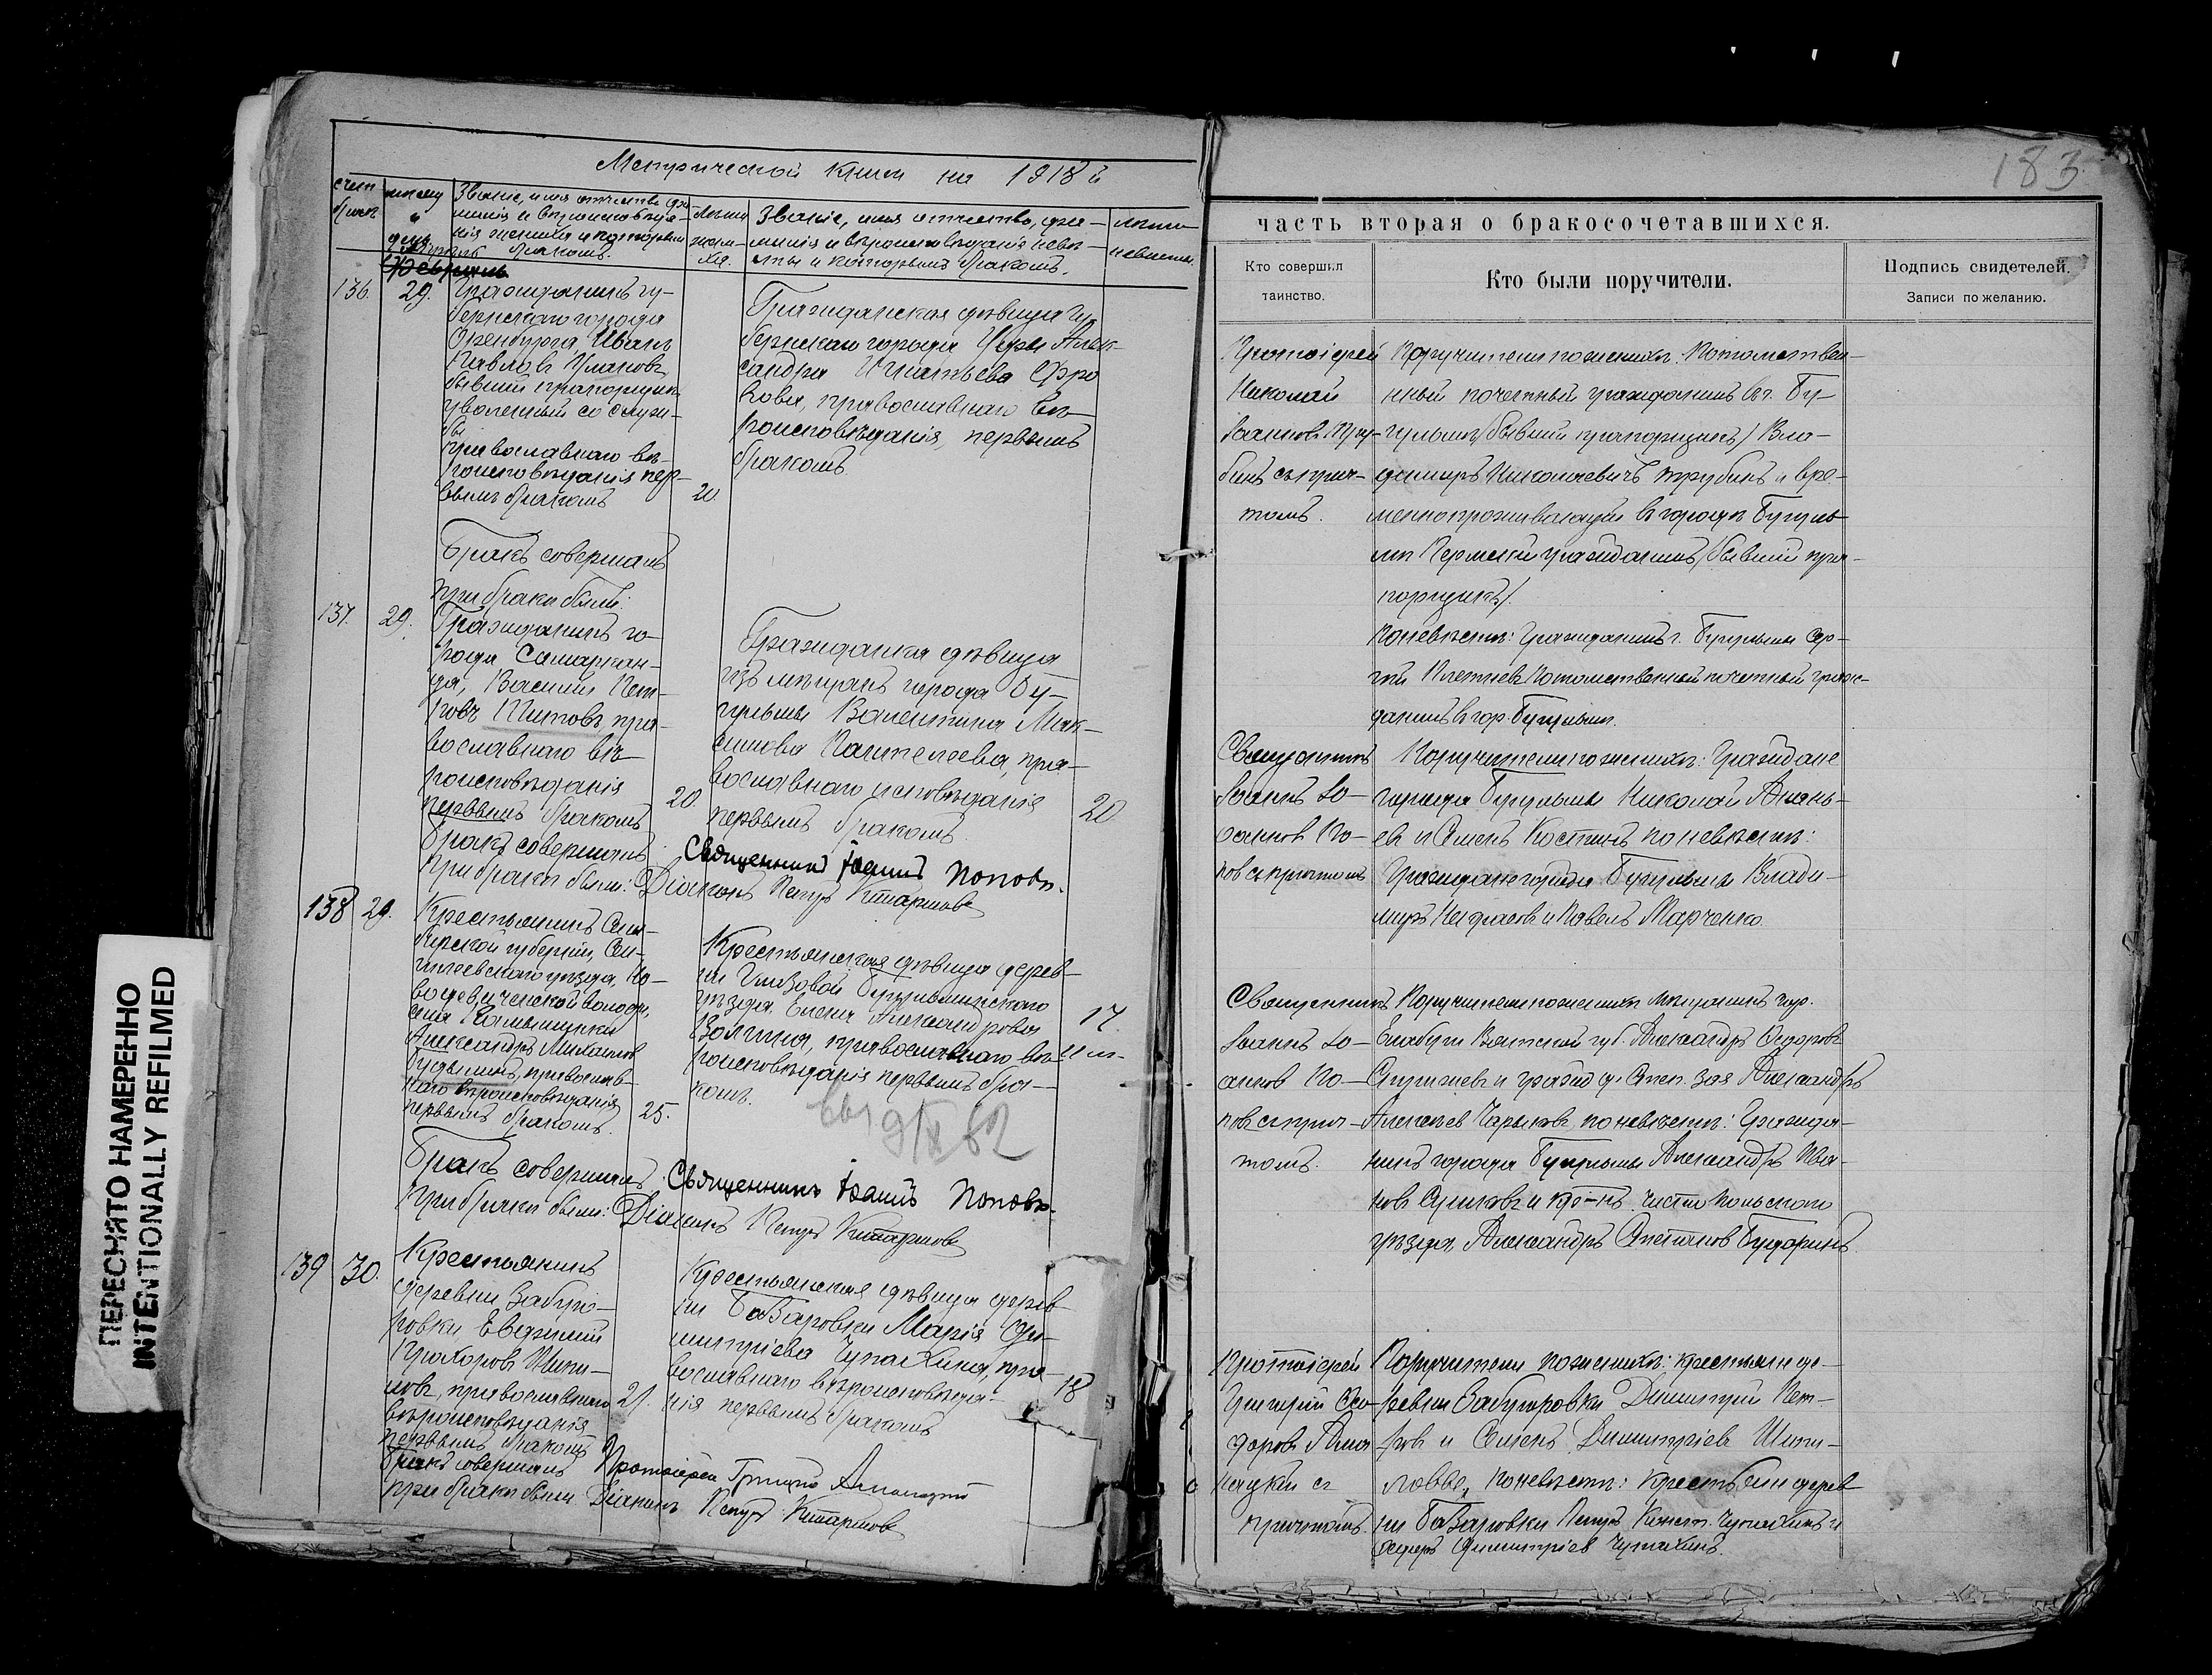 Метрической книги на 1918 й
счет
браков
месяц
и
день
Званіе, имя отчество фа-
милія и вѣроисповѣда-
нія жениха и которымъ
бракомъ.
Лета
жени-
ха.
Званіе, имя отчество, фа-
милія и вѣроисповѣданія невѣ-
сты и которымъ бракомъ.
Лета
невесты.
Февраль
136. 29.
Гражданинъ гу-
бернскаго города
Оренбурга Иванъ
Павловъ
бывшій прапорщикъ
уволенный со служ-
бы
православнаго вѣ-
роисповѣданія пер-
вымъ бракомъ
20.
Гражданская дѣвица гу-
бернскаго города Уфы Алек-
сандра Игнатьева Фро
лова, православнаго вѣ-
роисповѣданія, первымъ
бракомъ.
Бракъ совершалъ
при бракѣ были:
137. 29.
Гражданинъ го-
рода Самаркан-
да, Василій Пет-
ровъ Титовъ пра-
вославнаго вѣ-
роисповѣданія
первымъ бракомъ
20.
Гражданка дѣвица
изъ мѣщанъ города Бу-
гульмы Валентина Мак-
симова Пантелеева, пра-
вославнаго исповѣданія
первымъ бракомъ.
20
Бракъ совершалъ: Священникъ Іоаннъ Поповъ.
При бракѣ были: Діаконъ Петръ
138 29.
Крестьянинъ Сим-
бирской губерніи, Сен-
гилеевскаго уѣзда, Но-
водевиченской волости,
села
Александръ Михаиловъ
православ-
наго вѣроисповѣданія
первымъ бракомъ.
25.
Крестьянская дѣвица дерев-
ни Бугульминскаго
уѣзда, Елена Александрова
православнаго вѣ-
роисповѣданія первымъ бра-
комъ.
17.
Бракъ совершалъ: Священникъ Іоаннъ Поповъ.
При бракѣ были: Діаконъ Петръ
139 30.
Крестьянинъ
деревни Забуго-
ровки Евдокимъ
Прохоровъ Шипи-
ловъ, православнаго
вѣроисповѣданія
первымъ бракомъ
21.
Крестьянская дѣвица дерев-
ни БаЗаровки Марія Ди-
митріева Чупахина, пра-
вославнаго вѣроисповѣда-
нія первымъ бракомъ
18
Бракъ совершалъ Протоіерей Григорій
при бракѣ были Діаконъ Петръ
183.
часть вторая о бракосочетавшихся.
Кто совершил
таинство.
Кто были поручители.
Подпись свидетелей.
Записи по желанию.
Протоіерей
Николай
съ прич-
томъ.
Поручители по женихѣ: Потомствен-
ный почетный гражданинъ г. Бу-
гульмы (бывшій прапорщикъ) Вла-
димиръ Николаевичъ Трубинъ и вре-
меннопроживающій въ городѣ Бугуль-
мѣ Пермскій гражданинъ (бывшій пра-
порщикъ).
По невѣстѣ: Гражданинъ г. Бугульмы Сер-
гѣй Плетневъ Потомственный почетный граж-
данинъ гор. Бугульмы.
Священникъ
Іоаннъ Іо-
анновъ По-
повъ съ причтомъ
Поручители по женихѣ: Граждане
города Бугульмы Николай Ананъ-
евъ и Костинъ по невѣстѣ:
Граждане города Бугульмы Влади-
миръ Некрасовъ и Павелъ Марченко.
Священникъ
Іоаннъ Іо-
анновъ По-
повъ съ прич-
томъ.
Поручители по женихѣ мѣщанинъ гор.
Елабуги Вятской губ. Александръ Ѳедоровъ
и гражд. Александръ
Алексѣевъ по невѣстѣ: Гражда-
нинъ города Бугульмы Александръ Ива-
новъ и кр-нъ Чистопольскаго
уѣзда, Александръ Степановъ Бударинъ.
Протоіерей
Григорій Ѳео-
доровъ
съ
причтомъ.
Поручители по женихѣ: крестьяне де-
ревни Забугоровки Димитрій Пет-
ровъ и Семенъ Димитріевъ Шипи-
ловы, по невѣстѣ: Крестьяне дерев
ни БаЗаровки Петръ Конст. Чупахинъ и
Ѳедоръ Димитріев Чупахинъ.
ПЕРЕСНЯТО НАМЕРЕННО
INTENTIONALLY REFILMED